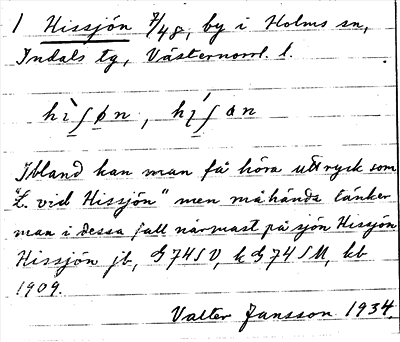 1 Hissjön 7/48, by i Holms sn,
Indals tg, Västernorrl. l.
Ibland kan man få höra uttryck som
"L. vid Hissjön" men måhända tänker
man i dessa fall närmast på sjön Hissjön
Hissjön jb, G 74 SV, k G 74 SU, kb
1909.
Valter Jansson 1934.